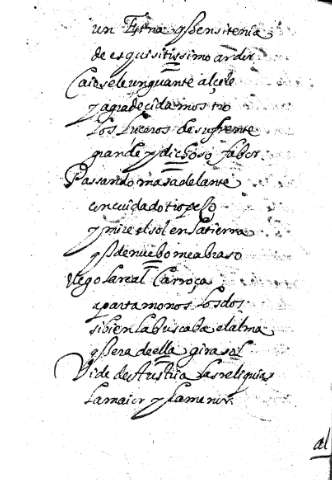 un Etna q pensitenia
de esquisitissimo ardor
Caiosele un guante al cole
y agradecida mostro
los luceros de su frente
grande y dichoso fabor
Passando mas adelante
con cuidado tropeso
y mire el sol en la tierra
q de nuebo me abraso
llego la real Carroça
apartamonos los dos
si bien la buscaba el alma
q era de ella girasol
Vide de Austria las reliquias
la maior y la menor.
al